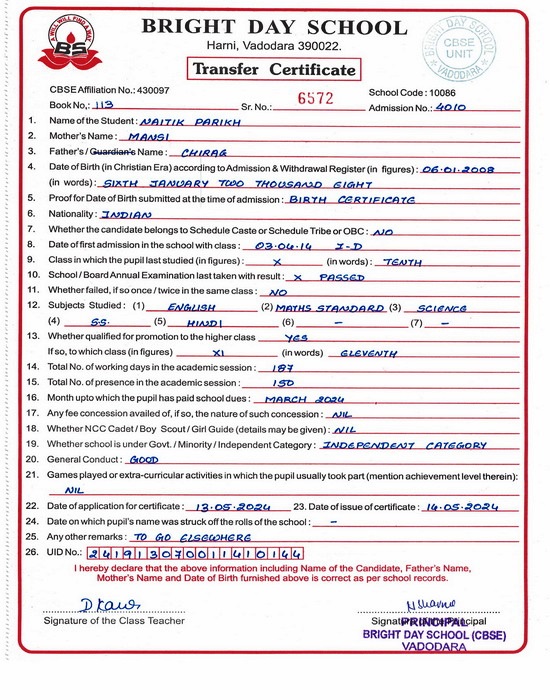 A WILL WILL FIND A WAY
BS
BRIGHT DAY SCHOOL
Harni, Vadodara 390022.
Transfer Certificate
BRIGHT DAY SCHOOL
CBSE
UNIT
VADODARA
CBSE Affiliation No.: 430097
School Code : 10086
Book No.: 113 Sr. No.: 6572 Admission No.: 4010
1. Name of the Student : NAITIK PARIKH
2. Mother's Name : MANSI
3. Father's / Guardian's Name : CHIRAG
4. Date of Birth (in Christian Era) according to Admission & Withdrawal Register (in figures) : 06.01.2008
(in words) : SIXTH JANUARY TWO THOUSAND EIGHT
5. Proof for Date of Birth submitted at the time of admission : BIRTH CERTIFICATE
6. Nationality : INDIAN
7. Whether the candidate belongs to Schedule Caste or Schedule Tribe or OBC : NO
8. Date of first admission in the school with class : 03.04.14 I-D
9. Class in which the pupil last studied (in figures) : X (in words) : TENTH
10. School / Board Annual Examination last taken with result : X PASSED
11. Whether failed, if so once / twice in the same class : NO
12. Subjects Studied : (1) ENGLISH (2) MATHS STANDARD (3) SCIENCE
(4) S.S. (5) HINDI (6) – (7) –
13. Whether qualified for promotion to the higher class YES
If so, to which class (in figures) XI (in words) ELEVENTH
14. Total No. of working days in the academic session : 187
15. Total No. of presence in the academic session : 150
16. Month upto which the pupil has paid school dues : MARCH 2024
17. Any fee concession availed of, if so, the nature of such concession : NIL
18. Whether NCC Cadet / Boy Scout / Girl Guide (details may be given) : NIL
19. Whether school is under Govt. / Minority / Independent Category : INDEPENDENT CATEGORY
20. General Conduct : GOOD
21. Games played or extra-curricular activities in which the pupil usually took part (mention achievement level therein):
NIL
22. Date of application for certificate : 13.05.2024 23. Date of issue of certificate : 14.05.2024
24. Date on which pupil's name was struck off the rolls of the school : –
25. Any other remarks : TO GO ELSEWHERE
26. UID No.: 241913070011410144
I hereby declare that the above information including Name of the Candidate, Father's Name,
Mother's Name and Date of Birth furnished above is correct as per school records.
Signature of the Class Teacher
PRINCIPAL
BRIGHT DAY SCHOOL (CBSE)
VADODARA